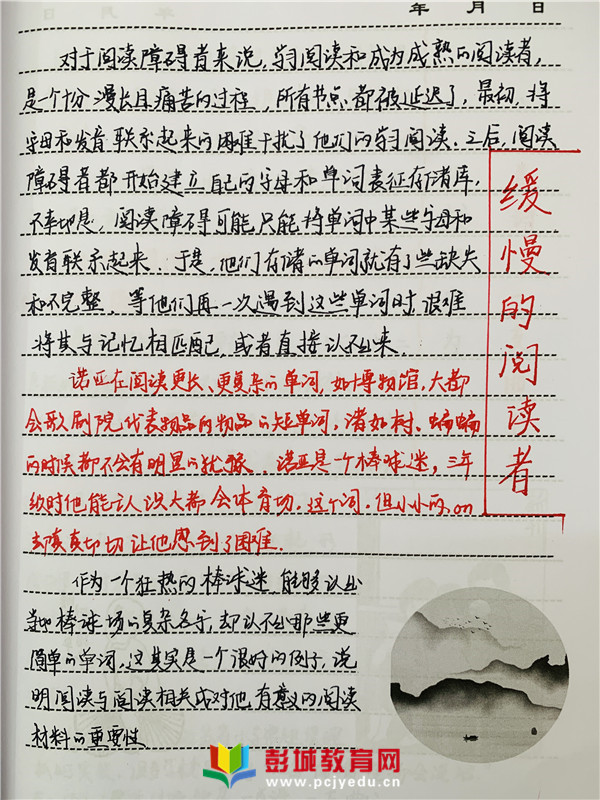 年 月 日
对于阅读障碍者来说，学习阅读和成为成熟的阅读者，
是个十分漫长且痛苦的过程，所有节点都被延迟了，最初，将
字母和发音联系起来的困难干扰了他们的学习阅读。之后，阅读
障碍者都开始建立自己的字母和单词表征存储库，
不幸的是，阅读障碍可能只能将单词中某些字母和
发音联系起来．于是，他们存储的单词就有了些缺失
和不完整，等他们再一次遇到这些单词时，很难
将其与记忆相匹配，或者直接认不出来．
缓慢的阅读者
诺亚在阅读更长、更复杂的单词，如博物馆，大都
会歌剧院代表物品的物品的短单词，诸如树、蝙蝠
的时候都不会有明显的犹豫．诺亚是一个棒球迷，三年
级时他能认识大都会体育场，这个词，但小小的，on
却真真切切让他感到了困难．
作为一个狂热的棒球迷，能够认出
棒球场的复杂名字，却认不出那些更
简单的单词，这其实是一个很好的例子，说
明阅读与阅读相关或对他有意义的阅读
材料的重要性
彭城教育网
www.pcjyedu.cn